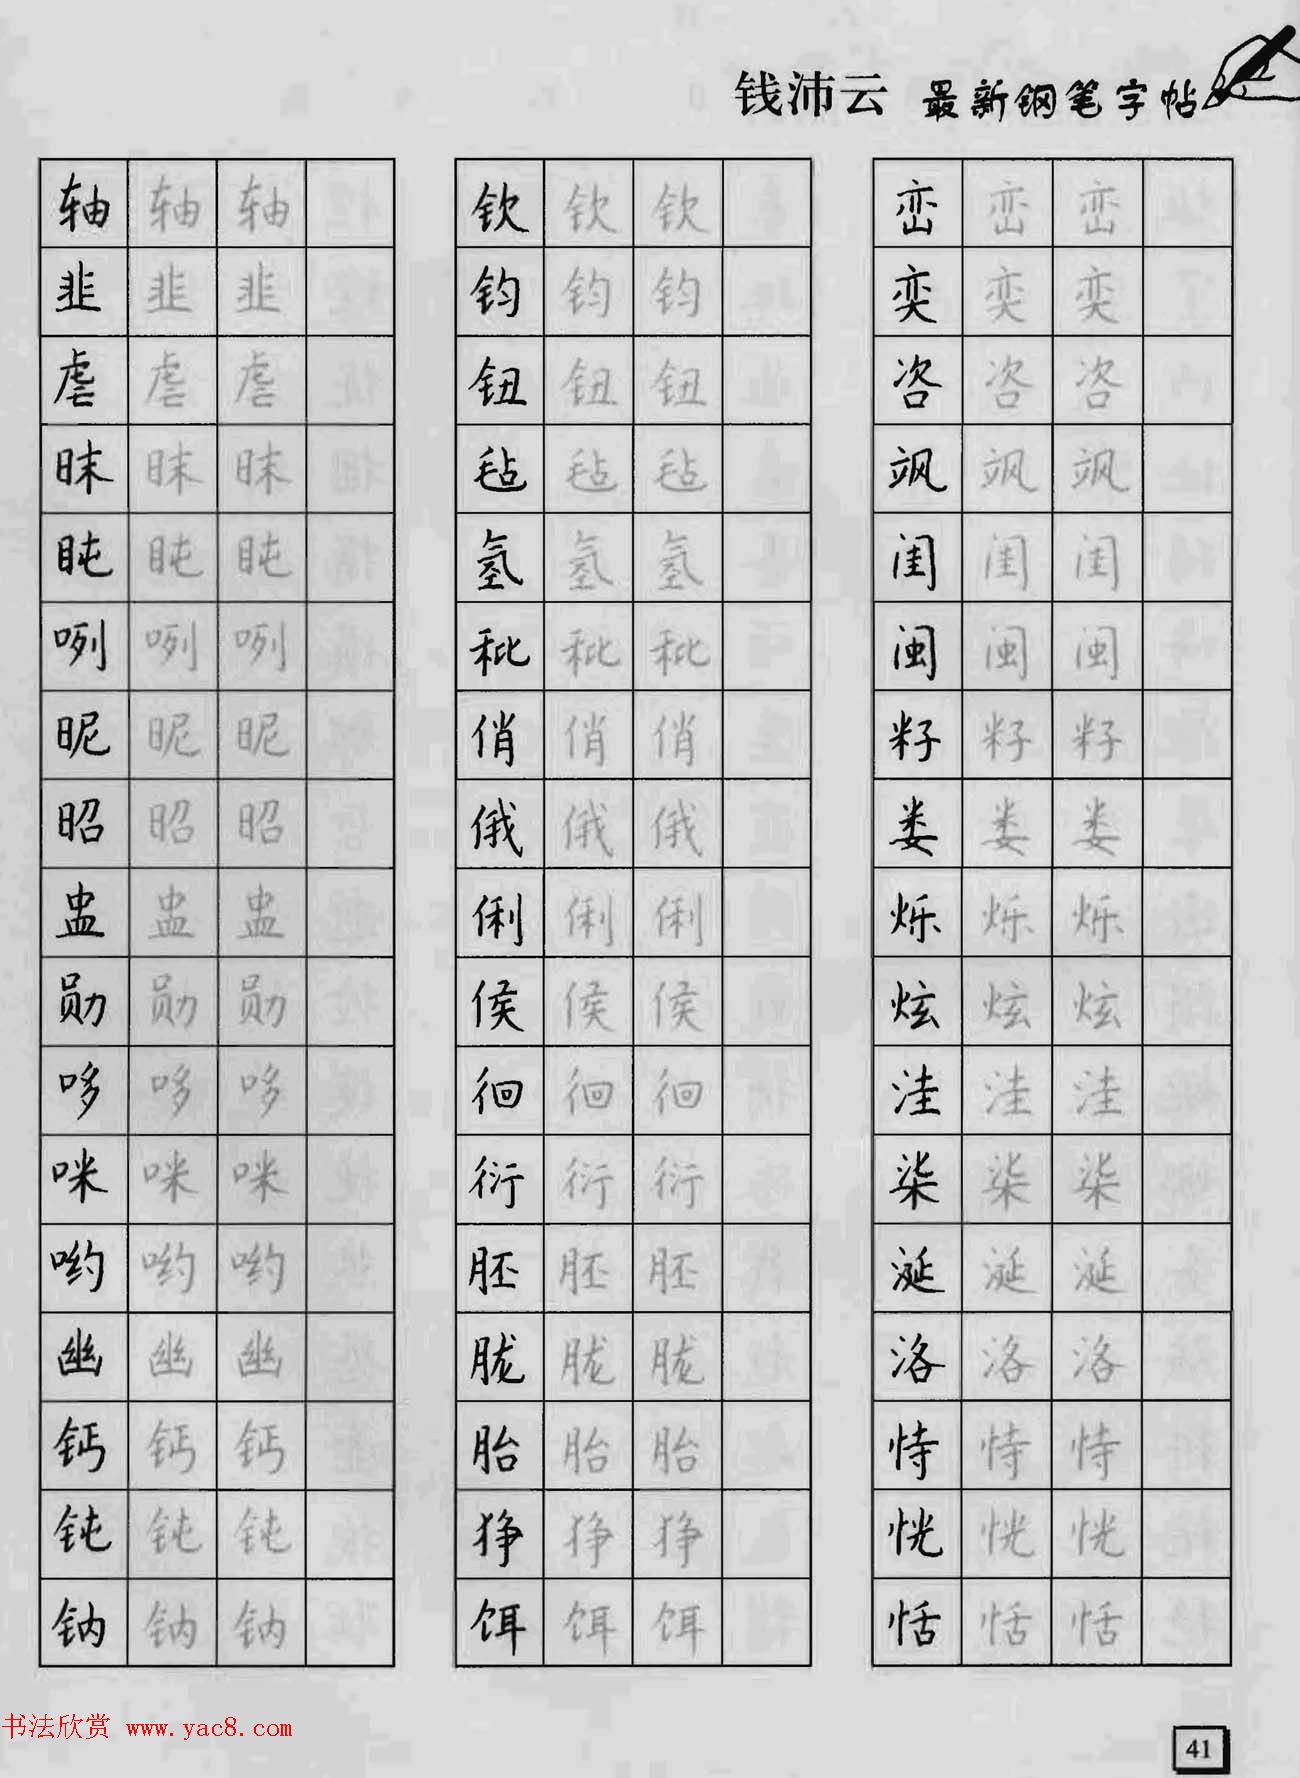 钱沛云 最新钢笔字帖
轴 轴 轴 钦 钦 钦 峦 峦 峦
韭 韭 韭 钧 钧 钧 奕 奕 奕
虐 虐 虐 钮 钮 钮 咨 咨 咨
昧 昧 昧 毡 毡 毡 飒 飒 飒
盹 盹 盹 氢 氢 氢 闺 闺 闺
咧 咧 咧 秕 秕 秕 闽 闽 闽
昵 昵 昵 俏 俏 俏 籽 籽 籽
昭 昭 昭 俄 俄 俄 娄 娄 娄
盅 盅 盅 俐 俐 俐 烁 烁 烁
勋 勋 勋 侯 侯 侯 炫 炫 炫
哆 哆 哆 徊 徊 徊 洼 洼 洼
咪 咪 咪 衍 衍 衍 柒 柒 柒
哟 哟 哟 胚 胚 胚 涎 涎 涎
幽 幽 幽 胧 胧 胧 洛 洛 洛
钙 钙 钙 胎 胎 胎 恃 恃 恃
钝 钝 钝 狰 狰 狰 恍 恍 恍
钠 钠 钠 饵 饵 饵 恬 恬 恬
书法欣赏 www.yac8.com
41